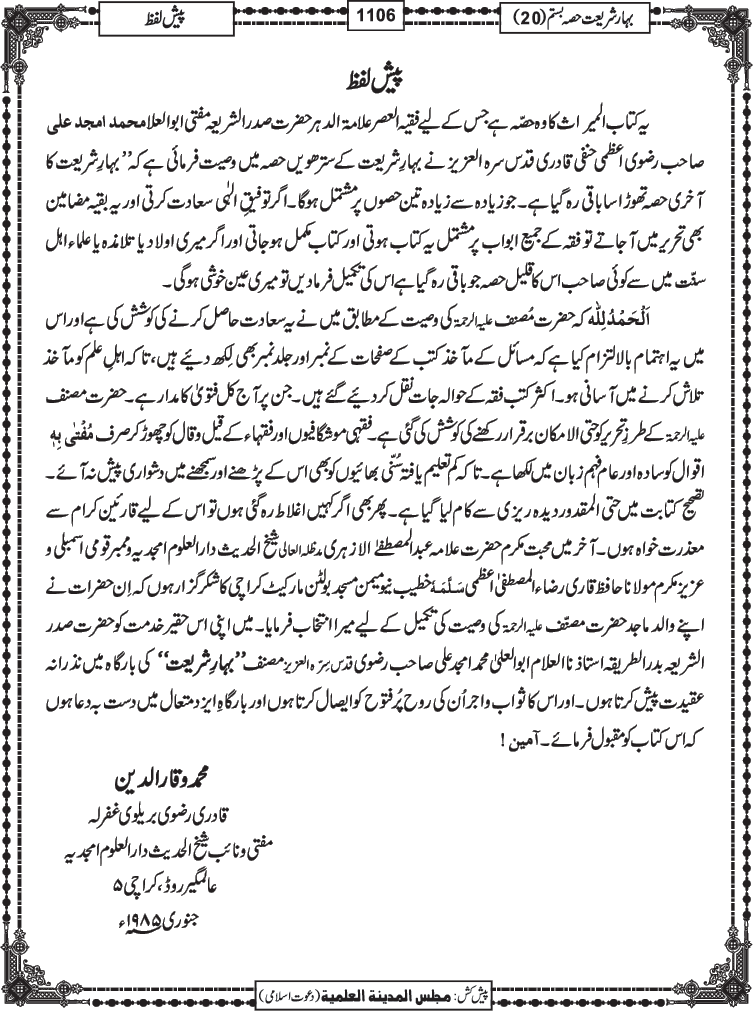 بہار شریعت حصہ بستم (20)
1106
پیش لفظ
پیش لفظ
یہ کتاب المیراث کا وہ حصّہ ہے جس کے لیے فقیہ العصر علامۃ الدہر حضرت صدر الشریعہ مفتی ابوالعلا محمد امجد علی
صاحب رضوی اعظمی حنفی قادری قدس سرہ العزیز نے بہارِ شریعت کے سترھویں حصہ میں وصیت فرمائی ہے کہ ’’بہارِ شریعت کا
آخری حصہ تھوڑا سا باقی رہ گیا ہے۔ جو زیادہ سے زیادہ تین حصوں پر مشتمل ہوگا۔ اگر توفیقِ الٰہی سعادت کرتی اور یہ بقیہ مضامین
بھی تحریر میں آجاتے تو فقہ کے جمیع ابواب پر مشتمل یہ کتاب ہوتی اور کتاب مکمل ہوجاتی اور اگر میری اولاد یا تلامذہ یا علماء اہل
سنّت میں سے کوئی صاحب اس کا قلیل حصہ جو باقی رہ گیا ہے اس کی تکمیل فرمادیں تو میری عین خوشی ہوگی۔
اَلْحَمْدُلِلّٰہ کہ حضرت مُصنف علیہ الرحمۃ کی وصیت کے مطابق میں نے یہ سعادت حاصل کرنے کی کوشش کی ہے اور اس
میں یہ اہتمام بالالتزام کیا ہے کہ مسائل کے مآخذ کتب کے صفحات کے نمبر اور جلد نمبر بھی لکھ دیئے ہیں، تاکہ اہلِ علم کو مآخذ
تلاش کرنے میں آسانی ہو۔ اکثر کتب فقہ کے حوالہ جات نقل کردیئے گئے ہیں۔ جن پر آج کل فتویٰ کا مدار ہے۔ حضرت مصنف
علیہ الرحمۃ کے طرزِ تحریر کو حتی الامکان برقرار رکھنے کی کوشش کی گئی ہے۔ فقہی موشگافیوں اور فقہاء کے قیل وقال کو چھوڑ کر صرف مُفْتٰی بِہٖ
اقوال کو سادہ اور عام فہم زبان میں لکھا ہے۔ تاکہ کم تعلیم یافتہ سُنّی بھائیوں کو بھی اس کے پڑھنے اور سمجھنے میں دشواری پیش نہ آئے۔
تصحیح کتابت میں حتی المقدور دیدہ ریزی سے کام لیا گیا ہے۔ پھر بھی اگر کہیں اغلاط رہ گئی ہوں تو اس کے لیے قارئین کرام سے
معذرت خواہ ہوں۔ آخر میں محبت مکرم حضرت علامہ عبدالمصطفےٰ الازہری مدظلہ العالی شیخ الحدیث دارالعلوم امجدیہ وممبر قومی اسمبلی و
عزیز مکرم مولانا حافظ قاری رضاء المصطفیٰ اعظمی سَلَّمَہٗ خطیب نیو میمن مسجد بولٹن مارکیٹ کراچی کا شکر گزار ہوں کہ اِن حضرات نے
اپنے والد ماجد حضرت مصنّف علیہ الرحمۃ کی وصیت کی تکمیل کے لیے میرا انتخاب فرمایا۔ میں اپنی اس حقیر خدمت کو حضرت صدر
الشریعہ بدر الطریقہ استاذنا العلام ابوالعلیٰ محمد امجد علی صاحب رضوی قدس سِرّہ العزیز مصنف ’’بہارِ شریعت‘‘ کی بارگاہ میں نذرانہ
عقیدت پیش کرتا ہوں۔ اور اس کا ثواب و اجر اُن کی روح پُرفتوح کو ایصال کرتا ہوں اور بارگاہِ ایزد متعال میں دست بہ دعا ہوں
کہ اس کتاب کو مقبول فرمائے۔ آمین !
محمد وقار الدین
قادری رضوی بریلوی غفرلہ
مفتی و نائب شیخ الحدیث دارالعلوم امجدیہ
عالمگیر روڈ، کراچی ۵
جنوری ۱۹۸۵ء
پیش کش: مجلس المدینۃ العلمیۃ (دعوت اسلامی)